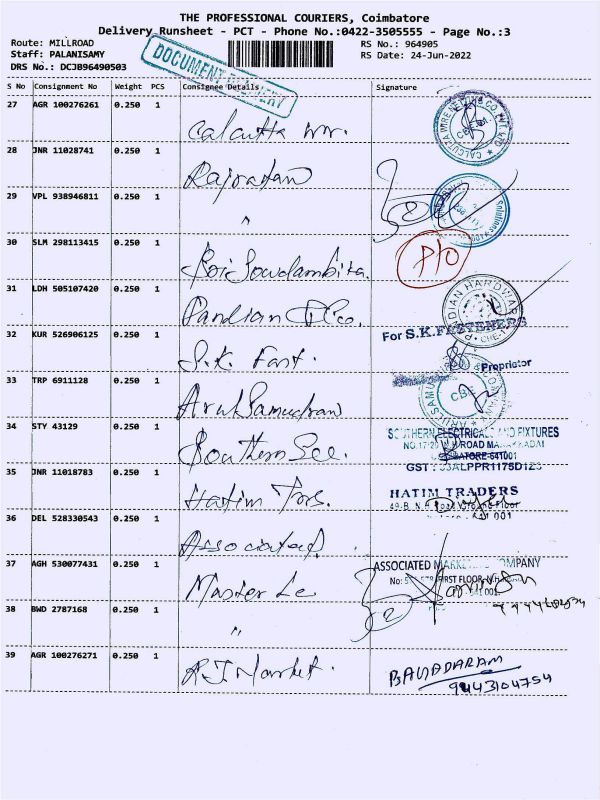 THE PROFESSIONAL COURIERS, Coimbatore
Delivery Runsheet - PCT - Phone No.:0422-3505555 - Page No.:3
Route: MILLROAD RS No.: 964905
Staff: PALANISAMY RS Date: 24-Jun-2022
DRS No.: DCJB96490503
DOCUMENT DELIVERY
S No Consignment No Weight PCS Consignee Details Signature
27 AGR 100276261 0.250 1 Calcutta
28 JNR 11028741 0.250 1 Rajratan
29 VPL 938946811 0.250 1 "
30 SLM 298113415 0.250 1 P/O
31 LDH 505107420 0.250 1 Pandian & Co.
For S.K. FASTENERS
32 KUR 526906125 0.250 1 S.K. Fast.
Proprietor
33 TRP 6911128 0.250 1 Arul Samudram
CBE
34 STY 43129 0.250 1 Southern Ele.
SOUTHERN ELECTRICAL AND FIXTURES
641001
35 JNR 11018783 0.250 1 Hatim Trrs.
HATIM TRADERS
36 DEL 528330543 0.250 1 Associated
37 AGH 530077431 0.250 1 Master Le
ASSOCIATED MARKETING COMPANY
FIRST FLOOR, N.H.
641 001
38 BWD 2787168 0.250 1 "
39 AGR 100276271 0.250 1 R.J Market.
9443104754